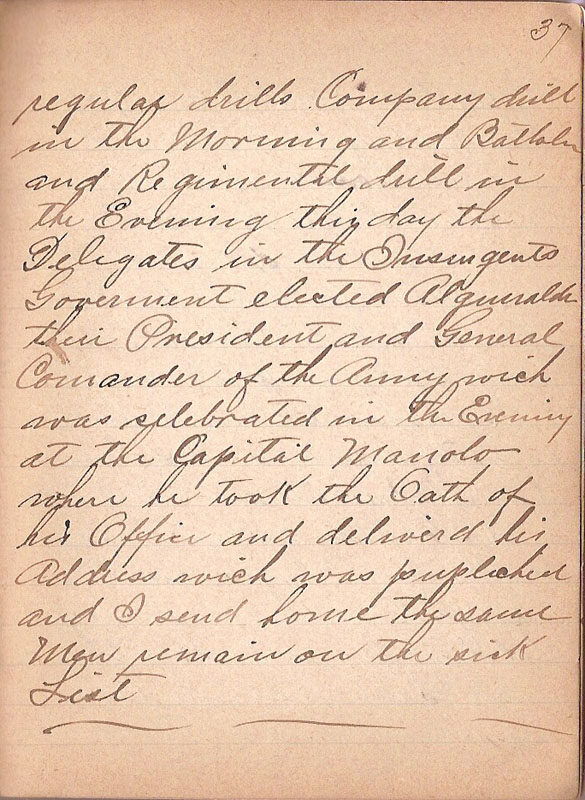 37
regular drills Company drill
in the Morning and Battalion
and Regimental drill in
the Evening this day the
Delegates in the Insurgents
Goverment elected Algunalde
their President and General
Comander of the Army wich
was selebrated in the Evening
at the Capital Manolo
where he took the Oath of
his Office and deliverd his
Address wich was puplished
and I send home the same
Men remain on the sick
List